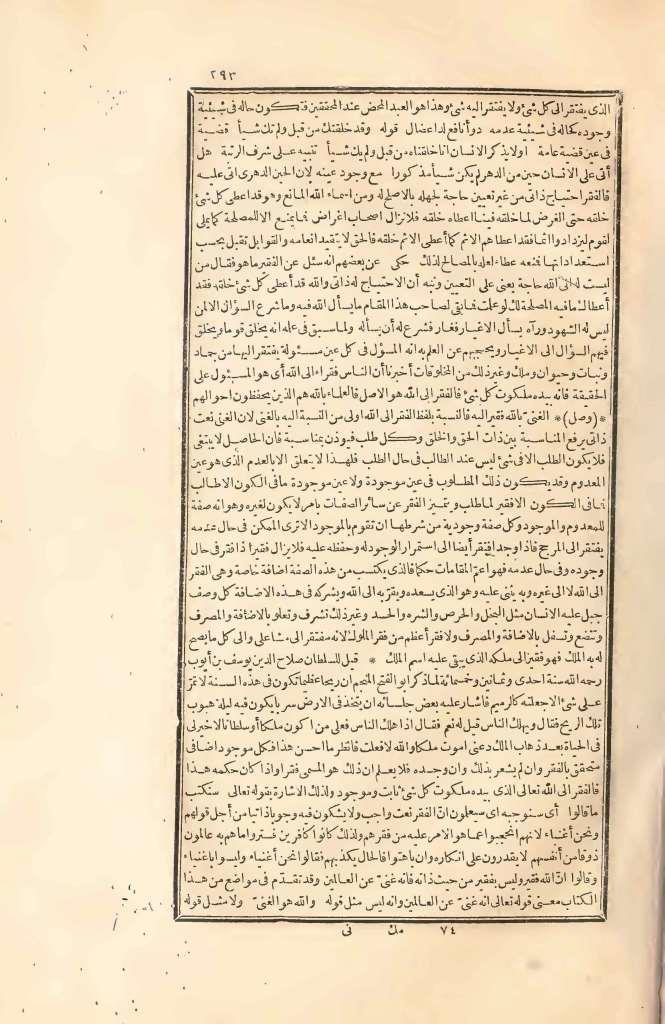 ٢٩٣
الذى يفتقر الى كل شئ ولا يفتقر اليه شئ وهذا هو العبد المحض عند المحققين فتكون حاله فى شيئية
وجوده كحاله فى شيئية عدمه دوأنافع لداعضال قوله وقد خلقتك من قبل ولم تك شيأ قضية
فى عين قضية عامة اولا يذكر الانسان انا خلقناه من قبل ولم يك شيأ تنبيه على شرف الرتبة هل
أتى على الانسان حين من الدهر لم يكن شيأ مذكورا مع وجود عينه لان الحين الدهرى اتى عليه
فالفقر احتياج ذاتى من غير تعيين حاجة لجهله بالاصلح له ومن اسماء الله المانع وهو قد اعطى كل شئ
خلقه حتى الغرض لما خلقه فينا اعطاه خلقه فلا نزال اصحاب اغراض فما يمنع الا للمصلحة كما يملى
لقوم ليزدادوا اثما فقد اعطاهم الاثم كما أعطى الاثم خلقه فالحق لا يتقيد انعامه والقوابل تقبل بحسب
استعداداتها فمنعه عطاء لعله بالمصالح لذلك حكى عن بعضهم انه سئل عن الفقير ما هو فقال من
ليست له الى الله حاجة يعنى على التعيين ونبه أن الاحتياج له ذاتى والله قد أعطى كل شئ خلقه فقد
أعطاك ما فيه المصلحة لك لو علمت فما بقى لصاحب هذا المقام ما يسأل الله فيه وما شرع السؤال الا لمن
ليس له الشهود ورآه يسأل الاغيار فغار فشرع له أن يسأله ولما سبق فى علمه انه يخلق قوما ويخلق
فيهم السؤال الى الاغيار ويحجبهم عن العلم به انه المسؤل فى كل عين مسئولة يفتقر اليها من جماد
ونبات وحيوان وملك وغير ذلك من المخلوقات أخبرنا أن الناس فقراء الى الله أى هو المسئول على
الحقيقة فانه بيده ملكوت كل شئ فالفقر الى الله هو الاصل فالعلماء بالله هم الذين يحفظون احوالهم
* (وصل) * الغنى بالله فقير اليه فالنسبة بلفظ الفقر الى الله اولى من النسبة اليه بالغنى لان الغنى نعت
ذاتى يرفع المناسبة بين ذات الحق والخلق وكل طلب فيوذن بمناسبة فان الحاصل لا يبتغى
فلا يكون الطلب الا فى شئ ليس عند الطالب فى حال الطلب فلهذا لا يتعلق الا بالعدم الذى هو عين
المعدوم وقد يكون ذلك المطلوب فى عين موجودة ولا عين موجودة ما فى الكون الا طالب
فما فى الكون الا فقير لما طلب ويتميز الفقر عن سائر الصفات بامر لا يكون لغيره وهو انه صفة
للمعدوم والموجود وكل صفة وجودية من شرطها ان تقوم بالموجود الا ترى الممكن فى حال عدمه
يفتقر الى المرجح فاذا وجد افتقر أيضا الى استمرار الوجود له وحفظه عليه فلا يزال فقيرا ذا فقر فى حال
وجوده وفى حال عدمه فهو اعم المقامات حكما فالذى يكتسب من هذه الصفة اضافة خاصة وهى الفقر
الى الله لا الى غيره وبه يثنى عليه وهو الذى يسعده ويقربه الى الله ويشركه فى هذه الاضافة كل وصف
جبل عليه الانسان مثل البخل والحرص والشره والحسد وغير ذلك تشرف وتعلو بالاضافة والمصرف
وتتضع وتسفل بالاضافة والمصرف ولا فقر أعظم من فقر الملوك لانه مفتقر الى مشاعلى والى كل ما يصح
له به الملك فهو فقير الى ملكه الذى يبقى عليه اسم الملك * قيل للسلطان صلاح الدين يوسف بن أيوب
رحمه الله سنة احدى وثمانين وخمسمائة لما ذكر ابو الفتح المنجم ان ريحا عظيما تكون فى هذه السنة لا تمر
على شئ الا جعلته كالرميم فاشار عليه بعض جلسائه ان يتخذ فى الارض سربا يكون فيه ليلة هبوب
تلك الريح فقال ويهلك الناس قيل له نعم فقال اذا هلك الناس فعلى من اكون ملكا أو سلطانا لا خير لى
فى الحياة بعد ذهاب الملك دعنى اموت ملكا والله لا فعلت فانظر ما احسن هذا فكل موجود اضافى
متحقق بالفقر وان لم يشعر بذلك وان وجده فلا يعلم ان ذلك هو المسمى فقرا واذا كان حكمه هذا
فالفقر الى الله تعالى الذى بيده ملكوت كل شئ ثابت وموجود ولذلك الاشارة بقوله تعالى سنكتب
ما قالوا أى سنوجبه اى سيعلمون انّ الفقر نعت واجب ولا يشكون فيه وجوبا ذاتيا من أجل قولهم
ونحن أغنياء لانهم انحجبوا عما هو الامر عليه من فقرهم ولذلك كانوا كافرين فستروا ما هم به عالمون
ذوقا من أنفسهم لا يقدرون على انكاره وان باهتوا فالحال يكذبهم فقالوا نحن أغنياء وليسوا باغنياء
وقالوا انّ الله فقير وليس بفقير من حيث ذاته فانه غنىّ عن العالمين وقد تقدّم فى مواضع من هذا
الكتاب معنى قوله تعالى انه غنىّ عن العالمين وانه ليس مثل قوله والله هو الغنىّ ولا مثل قوله
٧٤ مك نى